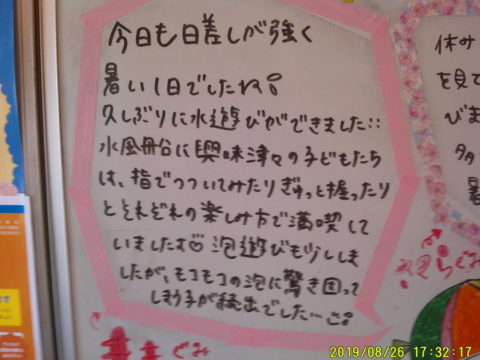 今日も日差しが強く
暑い1日でしたね!
久しぶりに水遊びができました::
水風船に興味津々の子どもたち
は、指でつついてみたりぎゅっと握ったり
とそれぞれの楽しみ方で満喫して
いました♡泡遊びも少しま
したが、モコモコの泡に驚き固って
しまう子が続出でした…
ぐみ
休み
を見て
びま
タタ
暑
らぐみ
2019/08/26 17:32:17